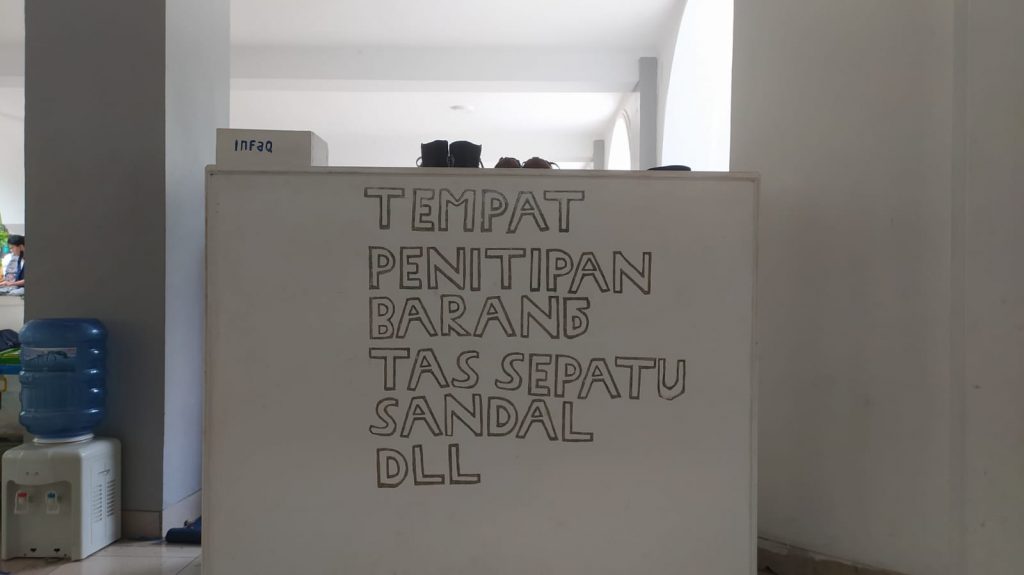 INFAQ
TEMPAT
PENITIPAN
BARANG
TAS SEPATU
SANDAL
DLL